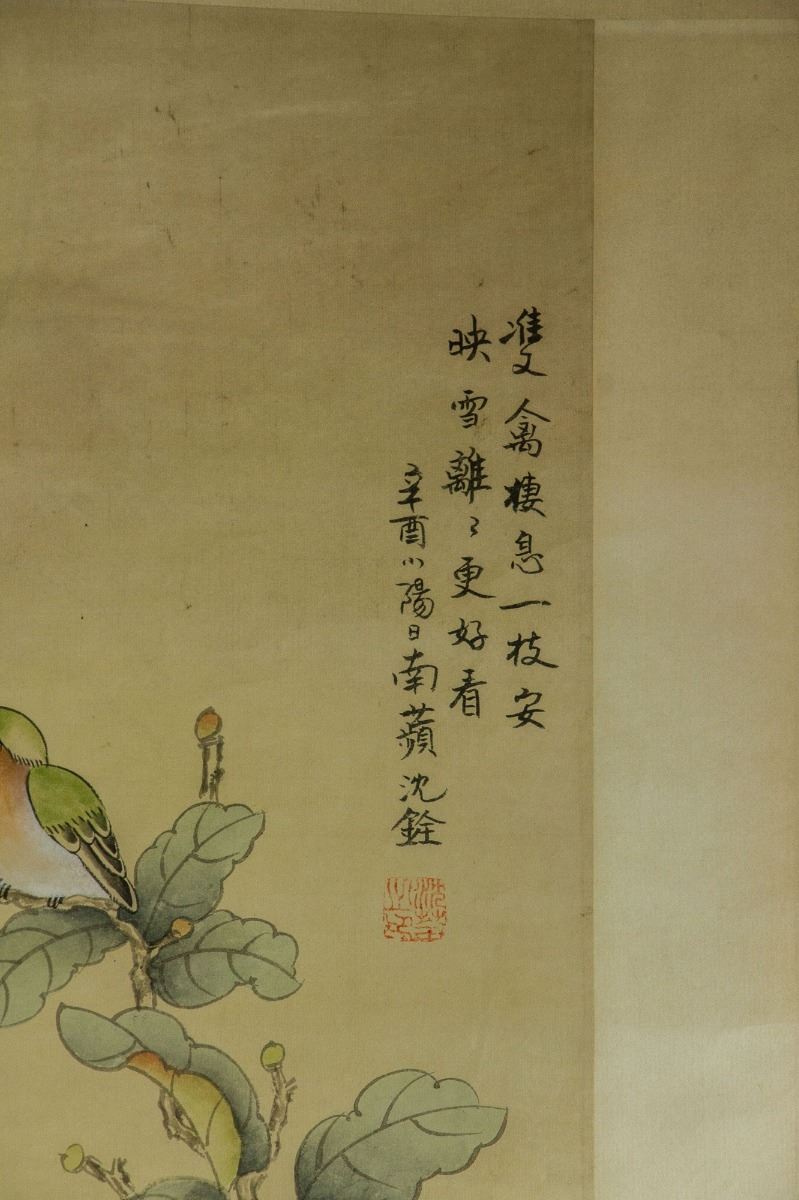 雙禽棲息一枝安
映雪離〻更好看
辛酉小陽日南蘋沈銓